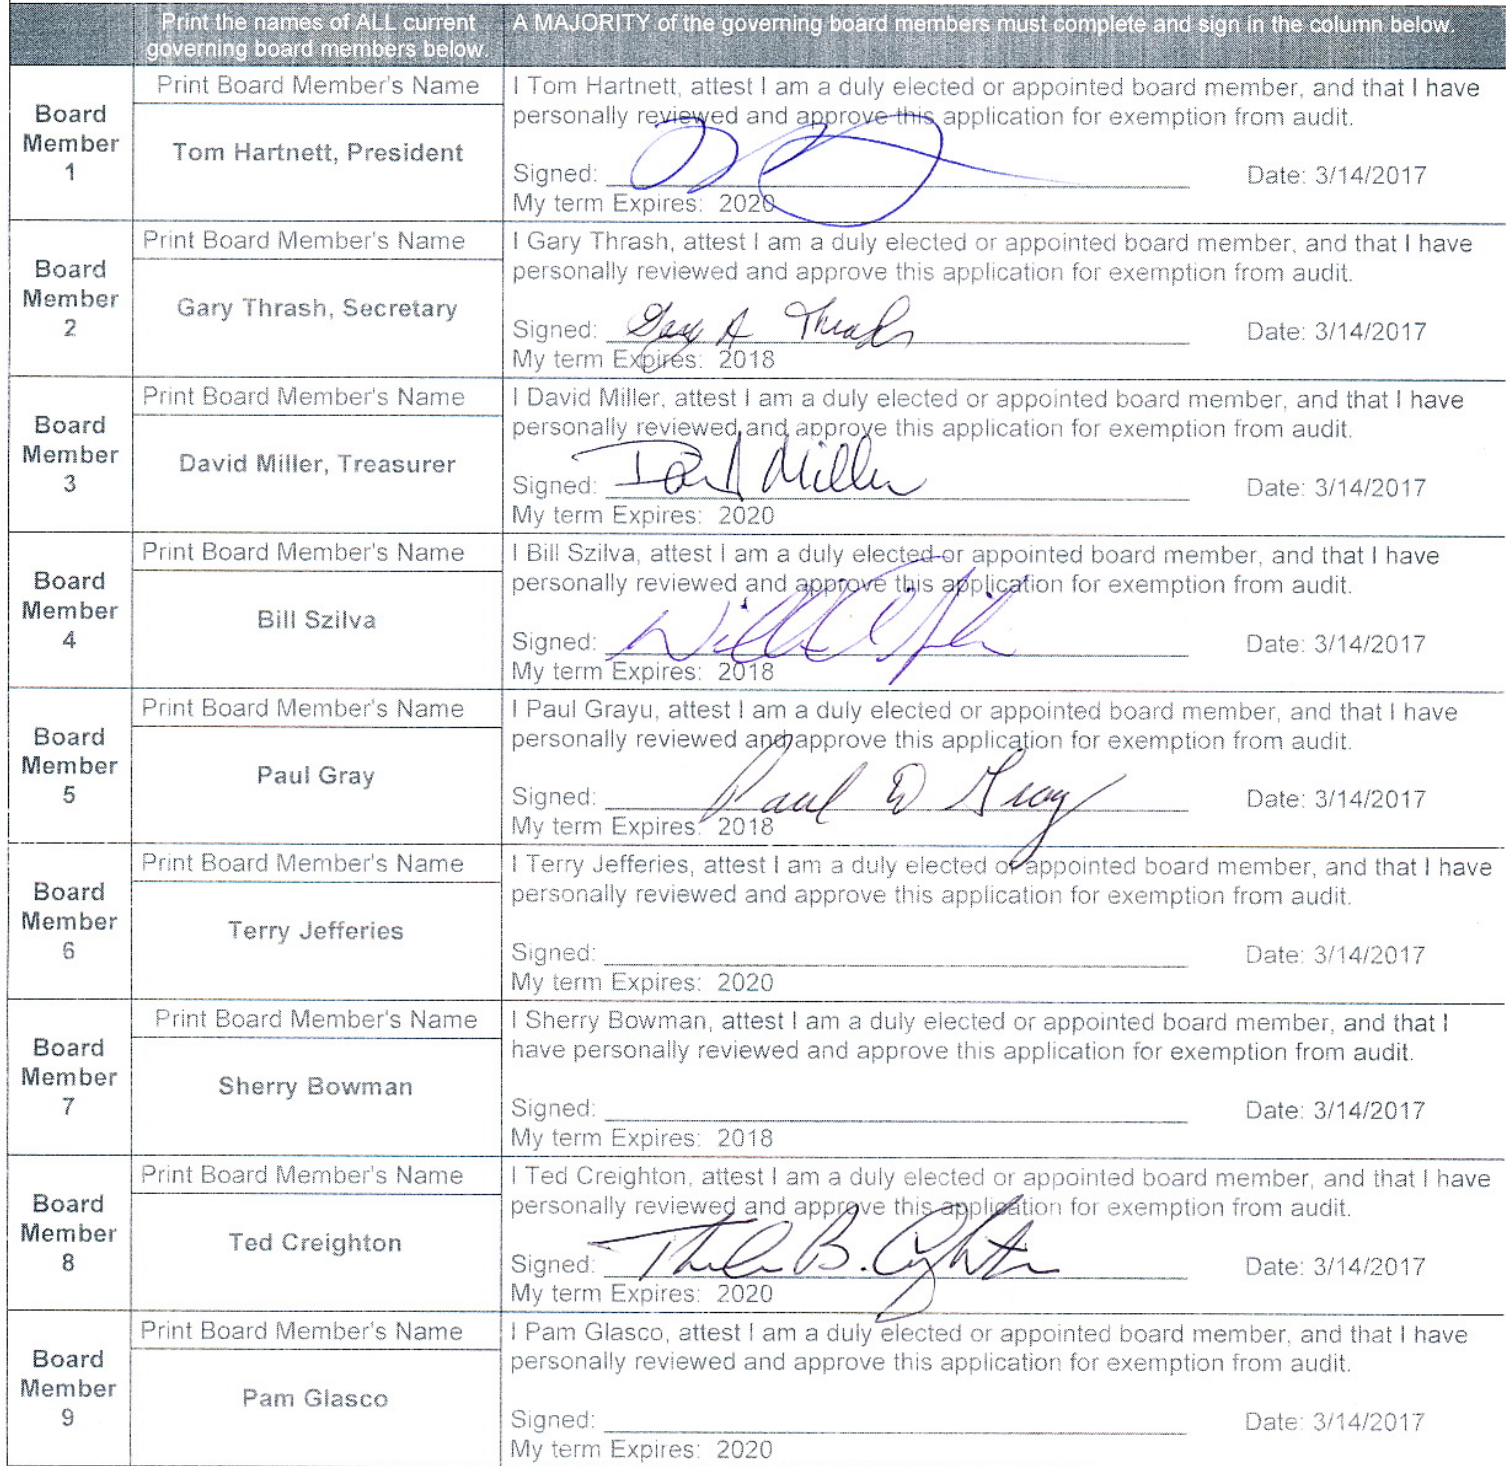 Print the names of ALL current governing board members below.
A MAJORITY of the governing board members must complete and sign in the column below.
Board Member 1
Print Board Member's Name
Tom Hartnett, President
I Tom Hartnett, attest I am a duly elected or appointed board member, and that I have
personally reviewed and approve this application for exemption from audit.
Signed: Date: 3/14/2017
My term Expires: 2020
Board Member 2
Print Board Member's Name
Gary Thrash, Secretary
I Gary Thrash, attest I am a duly elected or appointed board member, and that I have
personally reviewed and approve this application for exemption from audit.
Signed: Gary A Thrash Date: 3/14/2017
My term Expires: 2018
Board Member 3
Print Board Member's Name
David Miller, Treasurer
I David Miller, attest I am a duly elected or appointed board member, and that I have
personally reviewed and approve this application for exemption from audit.
Signed: David Miller Date: 3/14/2017
My term Expires: 2020
Board Member 4
Print Board Member's Name
Bill Szilva
I Bill Szilva, attest I am a duly elected or appointed board member, and that I have
personally reviewed and approve this application for exemption from audit.
Signed: Date: 3/14/2017
My term Expires: 2018
Board Member 5
Print Board Member's Name
Paul Gray
I Paul Grayu, attest I am a duly elected or appointed board member, and that I have
personally reviewed and approve this application for exemption from audit.
Signed: Paul D Gray Date: 3/14/2017
My term Expires: 2018
Board Member 6
Print Board Member's Name
Terry Jefferies
I Terry Jefferies, attest I am a duly elected or appointed board member, and that I have
personally reviewed and approve this application for exemption from audit.
Signed: Date: 3/14/2017
My term Expires: 2020
Board Member 7
Print Board Member's Name
Sherry Bowman
I Sherry Bowman, attest I am a duly elected or appointed board member, and that I
have personally reviewed and approve this application for exemption from audit.
Signed: Date: 3/14/2017
My term Expires: 2018
Board Member 8
Print Board Member's Name
Ted Creighton
I Ted Creighton, attest I am a duly elected or appointed board member, and that I have
personally reviewed and approve this application for exemption from audit.
Signed: Date: 3/14/2017
My term Expires: 2020
Board Member 9
Print Board Member's Name
Pam Glasco
I Pam Glasco, attest I am a duly elected or appointed board member, and that I have
personally reviewed and approve this application for exemption from audit.
Signed: Date: 3/14/2017
My term Expires: 2020